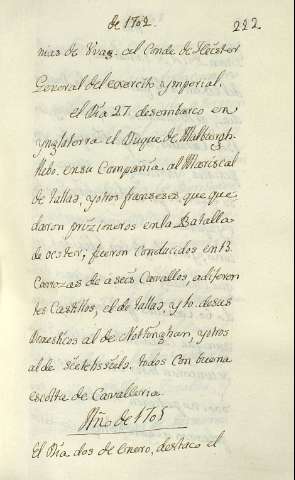 de 1702. 222
mas de Uvas. al Conde de Heister
General del exercito ymperial.
el Dia 27. desembarco en
ynglaterra el Duque de Malburgh.
llebo. en su Compañia. al Mariscal
de tallas, y otros franseses, que que
daron prizioneros en la Batalla
de ocster; fueron conducidos en 13.
Carrozas de a seis Cavallos, a diferen
tes Castillos, el de tallas, y to. de sus
Domesticos al de Nottinghan, y otros
al de todos con buena
escolta de Cavalleria.
Año de 1705
el Dia dos de enero, destaco el